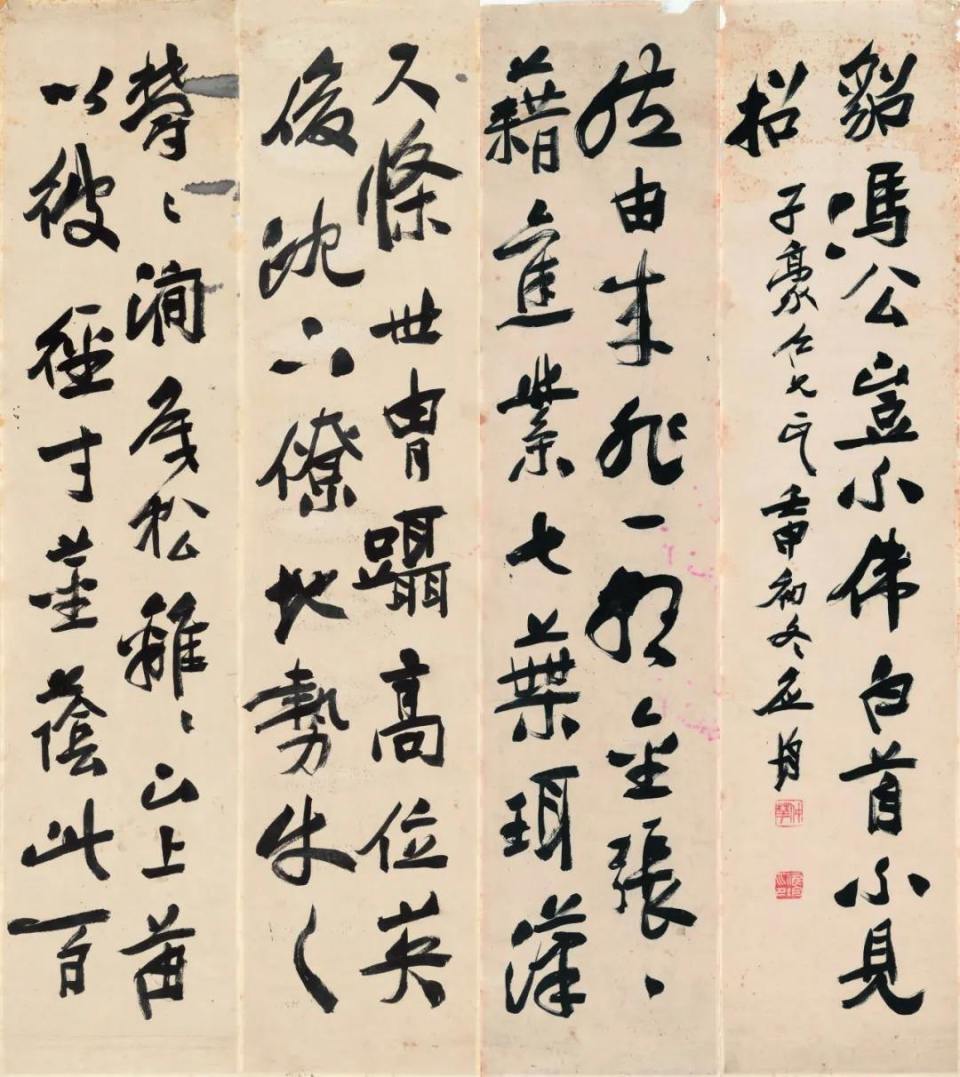 鬱〻澗底松離〻山上苗
以彼徑寸莖蔭此百
尺條世胄躡高位英
後沈下僚地勢使之
然由來非一朝金張〻
藉舊業七葉珥漢
貂馮公豈不偉白首不見
招
子豪仁兄正 壬申初冬